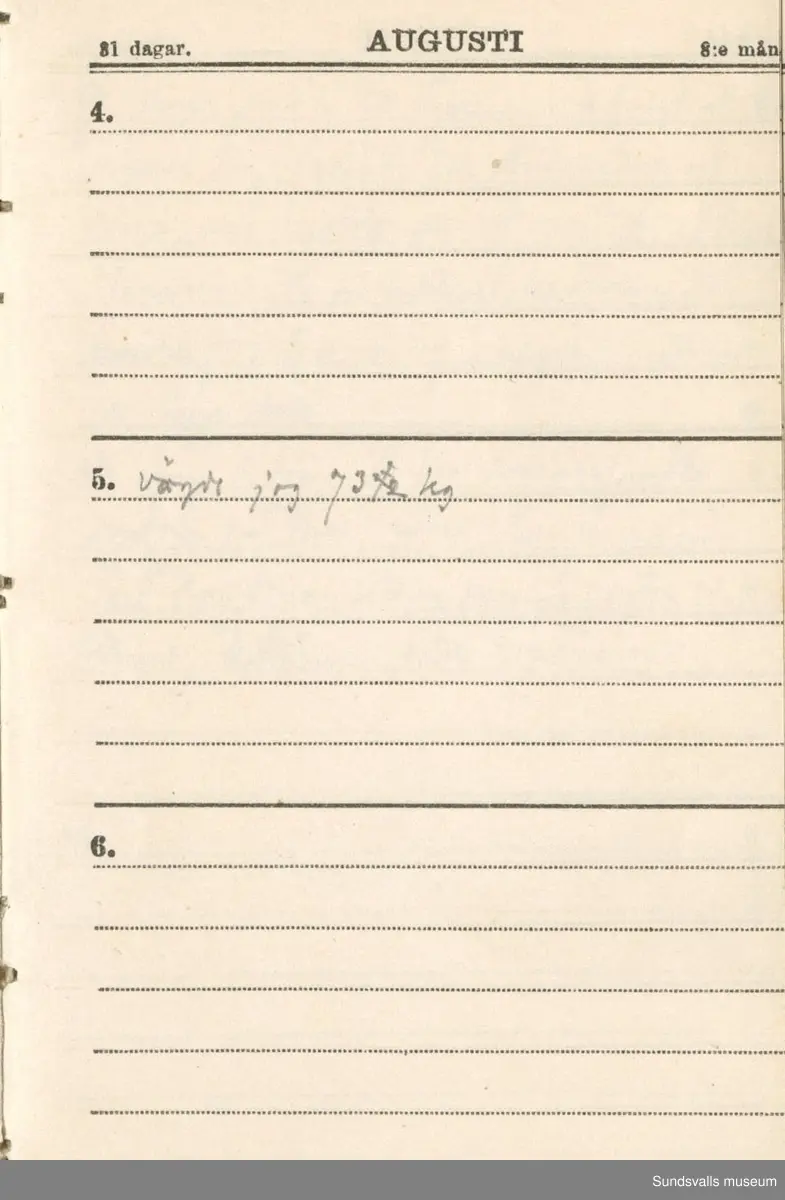 31 dagar. AUGUSTI 8:e mån
4.
5. vägde jag 73 kg
6.
Sundsvalls museum